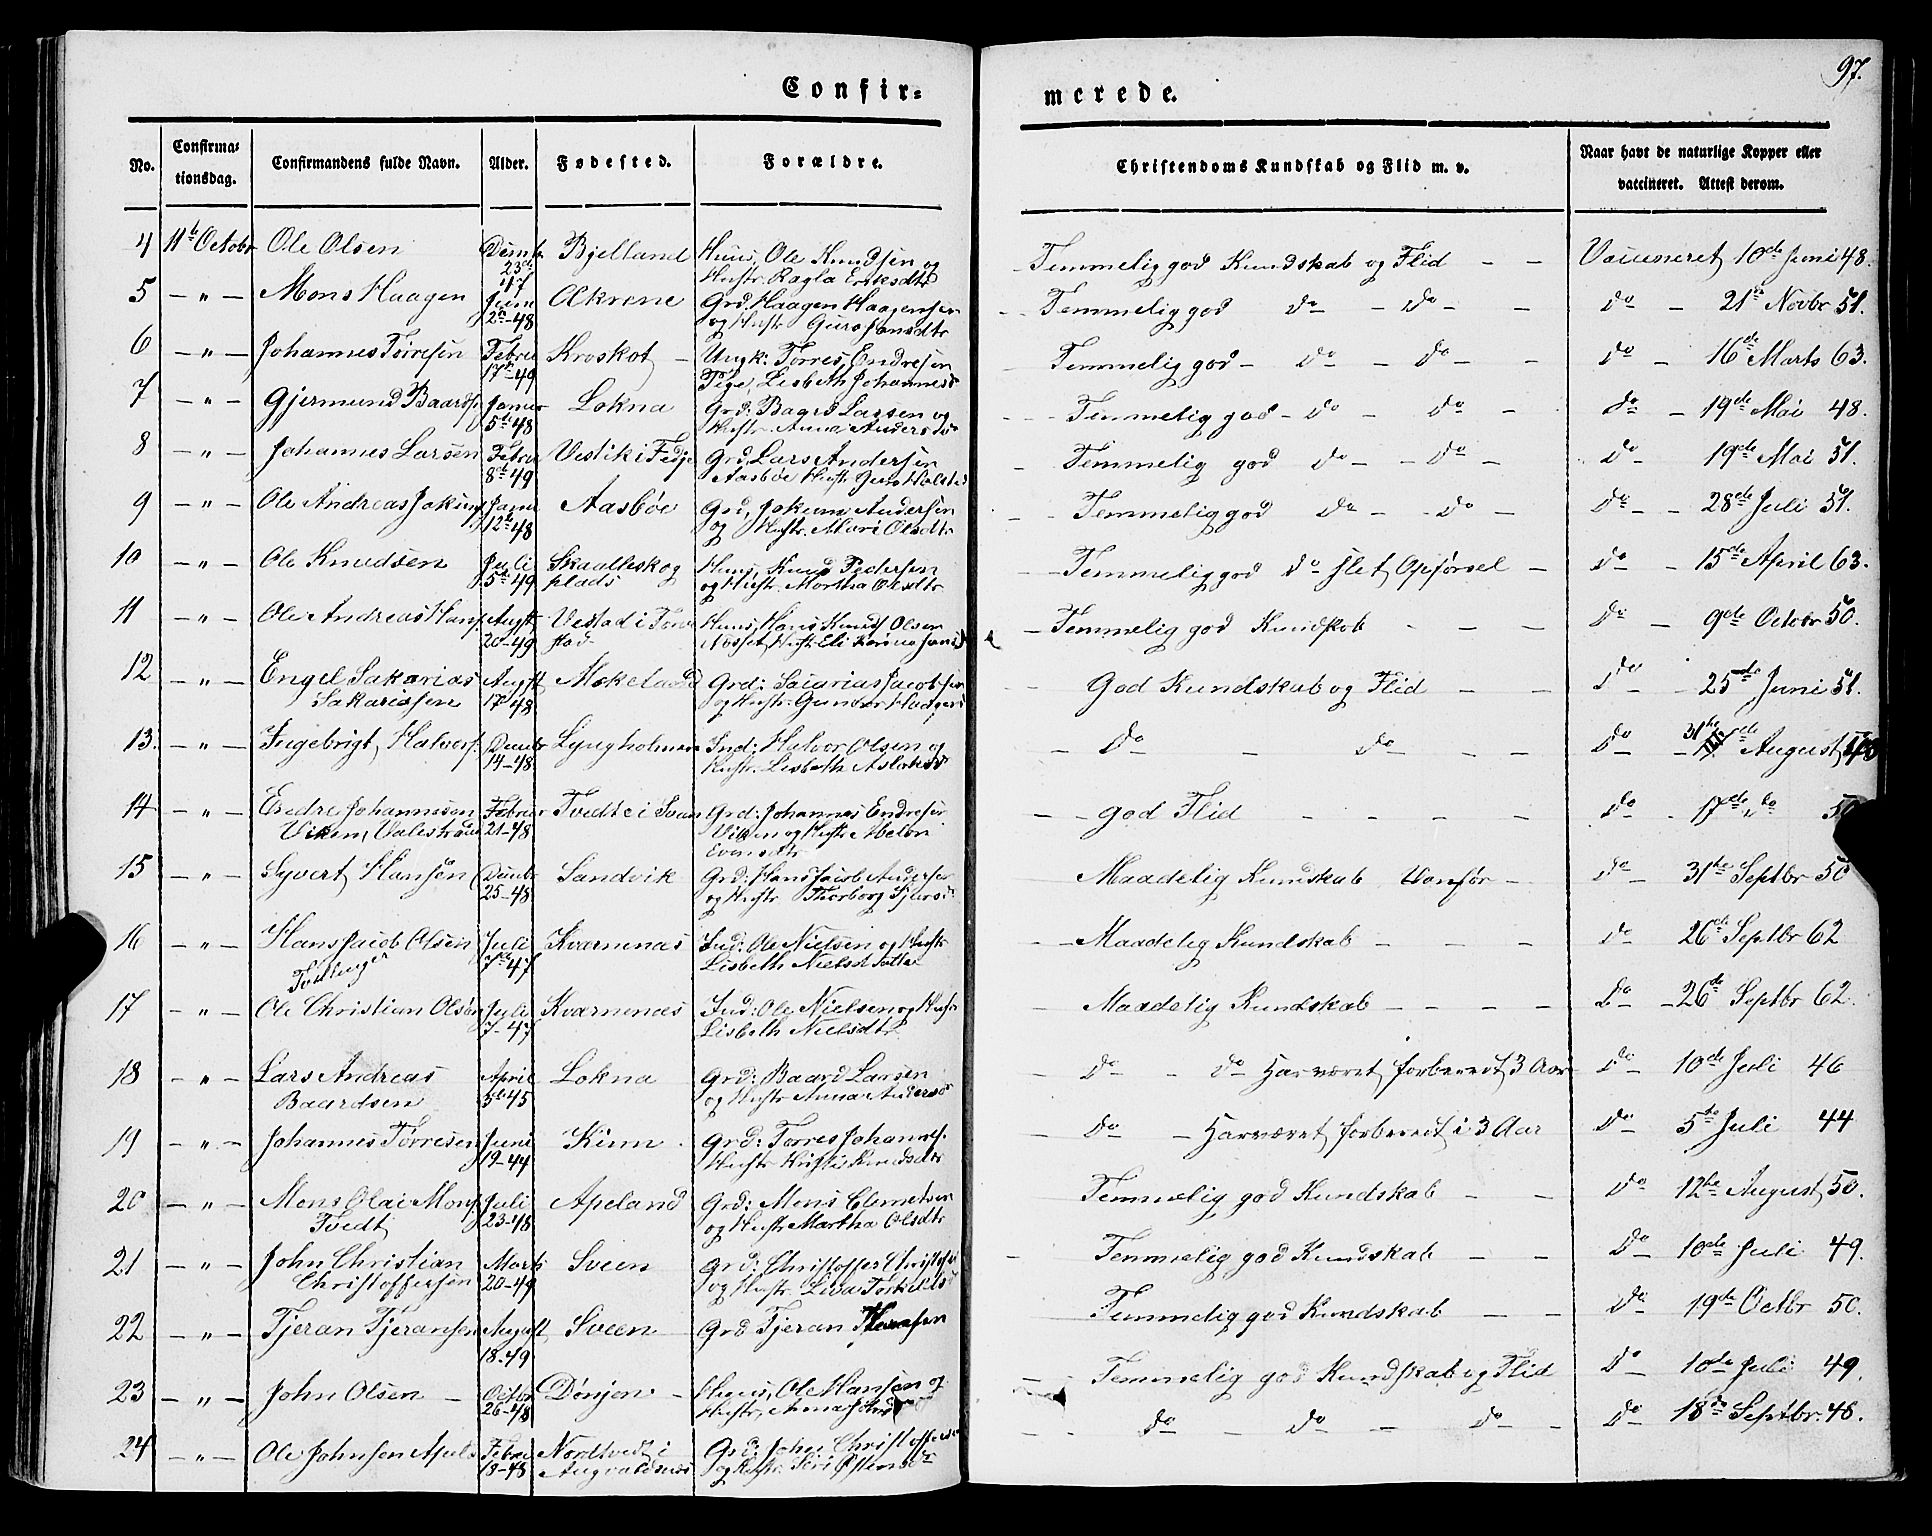 97.
Confir= merede.
No. Confirma= tionsdag. Confirmandens fulde Navn. Alder. Fødested. Forældre. Christendoms Kundskab og Flid m. v. Naar havt de naturlige Kopper eller vaccineret. Attest derom.
4 11te Octobr Ole Olsen Decmb 23de 47 Bjelland Huus, Ole Knudsen og Hustr. Ragla Eriksdtr Temmelig god Kundskab og Flid — — Vaccineret 10de Juni 48.
5 — " — Mons Haagen Juni 2de-48 Økrene Grd. Haagen Haagensen og Hustr. Guro Jansdtr Temmelig god do — do — — do — 21de Novbr 51.
6 — " — Johannes Tørresen Febru 17de-49 Kroskot — Ungk: Tørres Endresen Pige, Lisbeth Johannesd Temmelig god — do — do — — do — 16de Marts 63.
7 — " — Gjermund Baards Janur 5de 48 Lokna Grd: Baard Larsen og Hustr. Anna Andersdr Temmelig god — do — do — do — 19de Mai 48.
8 — " — Johannes Larsen Febru 8de 49 Vestik i Fedje Grd. Lars Andersen Aasbøe Hustr. Temmelig god do — — do — do — 19de Mai 51.
9 — " — Ole Andreas Janu 12te 48 Aasbøe Grd, Jokum Andersen og Hustr. Mari Olsdtr Temmelig god do — — do — do — — 28de Juli 51.
10 — " — Ole Knudsen Juli 5de 49 Skaalleskog plads Huus, Knud Pedersen og Hustr. Martha Olsdtr Temmelig god do slet Opførsel — do — — 15de April 63.
11 — " — Ole Andreas Hans Augst 20-49 Vestad i stad Huus, Hans Knuds Olsen Hustr. Eli Temmelig god Kundskab — — — do — 9de Octobr 50.
12 — " — Engel Sakarias Sakariassen Augst 17de 48 Mækeland Grd: Sacarias Jacobsen og Hustr. Gunder Haagensd God Kundskab og Flid — — do — 25de Juni 51.
13. — " — Ingebrigt Halvors. Decmbr 14-48 Lyngholmen Ind: Halvor Olsen og Hustr. Lisbeth Aslaksd — do — do — — do — 31te August
14 — " — Endre Johannesen Viken, Valestrand Februr 21-48 Tvedte i Sveen Grd. Johannes Endresen Viken og Hustr. Evensdtr — — god Flid — — — — do — 17de do
15 — " — Syvert Hansen Decmbr 25-48 Sandvik Grd: Hans Jacob Andersen og Hustr. Thorborg Sjursd: Maadelig Kundskab Vanfør — do — 31te Septbr 50
16 — " — Hans Jacob Olsen Juli 7de 47 Kvarnenæs Ind: Ole Nielsen og Hustr Lisbeth Nielsdatter — — Maadelig Kundskab — — — do — 26de Septbr 62
17 — " — Ole Christian Olsen Juli 7-47 Kvarnenæs Ind: Ole Nielsen og Hustr Lisbeth Nielsdtr — Maadelig Kundskab — — — — do — — 26de Septbr 62.
18 — " — Lars Andreas Baardsen April 5de 45 Lokna Grd: Baard Larsen og Hustr. Anna Andersdr — do — — do Har været forberedt 3 Aar do — 10de Juli 46
19 — " — Johannes Tørresen Juni 19-44 Kinn. Grd: Tørres Johannes. Hustr Kirstie Knudsdtr — do — Har været forberedt i 3 Aar do — 5te Juli 44
20 — " — Mons Olai Mons. Tvedt Juli 23-48 Apeland Grd: Mons Clemetsen og Hustr. Martha Olsdtr Temmelig god Kundskab — — do — 12te August 50.
21 — " — John Christian Christoffersen Marts 20-49 Sveen Grd: Christoffer og Hustr. Liva Torkelsd — Temmelig god Kundskab — — do — 10de Juli 49.
22 — " — Tjeran Tjeransen August 18-49 Sveen Grd Tjeran Temmelig god Kundskab — — do — 19de Octbr 50.
23 — " — John Olsen — Octbr 26-48 Dönjen — Huus, Ole Hansen og Hustr, Anna — Temmelig god Kundskab og Flid do — 10de Juli 49.
24 — " — Ole Johnsen Febru 18-48 Nordtvedt i Augvaldsnæs Grd: John Christoffersen og Hustr. Siri — — do — do — do — — do — 18de Septbr. 48.